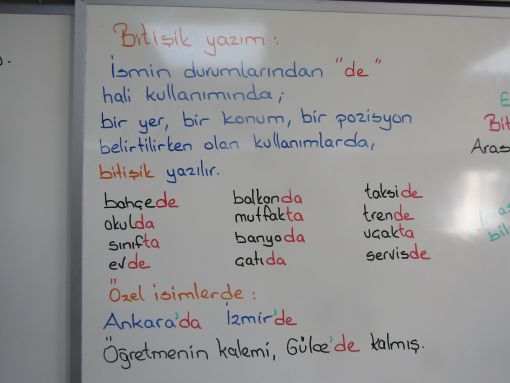 Bitişik yazım:
İsmin durumlarından "de"
hali kullanımında;
bir yer, bir konum, bir pozisyon
belirtilirken olan kullanımlarda,
bitişik yazılır.
bahçede balkonda takside
okulda mutfakta trende
sınıfta banyoda uçakta
evde çatıda serviste
Özel isimlerde:
Ankara'da İzmir'de
Öğretmenin kalemi, Gülce'de kalmış.